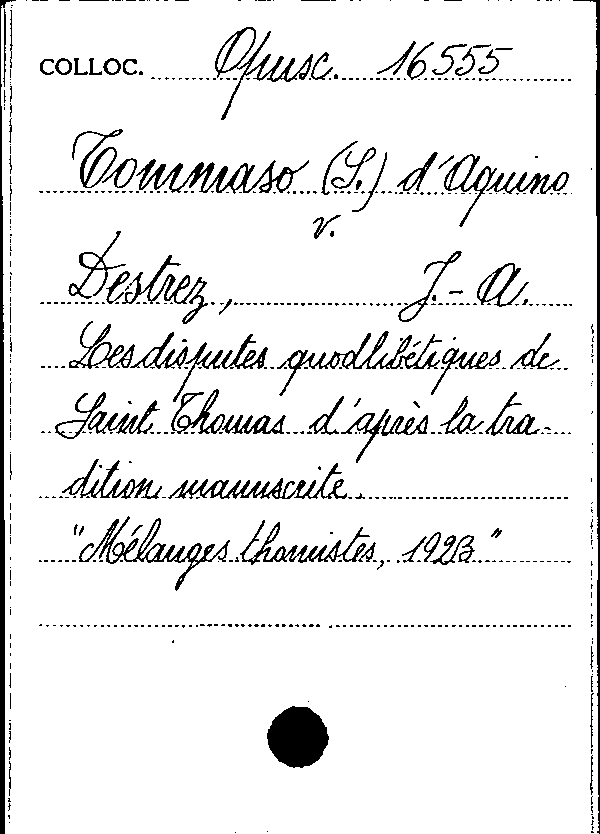 COLLOC. Opusc. 16555
Tommaso (S.) d'Aquino
v.
Destrez, J.-A.
Les disputes quodlibétiques de
Saint Thomas d'après la tra-
dition manuscrite.
"Mélanges thomistes, 1923"